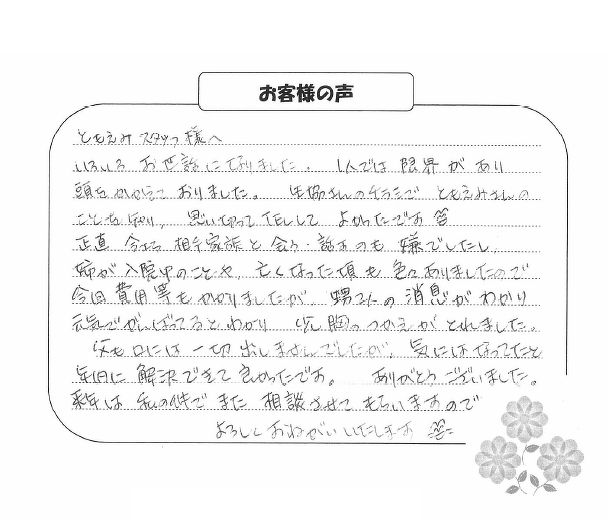 お客様の声
ともえみスタッフ様へ
いろいろ お世話になりました. 1人では 限界が あり
頭を かかえて おりました。 生協さんのチラシで ともえみさんの
ことを 知り, 思い切って TELして よかったです
正直 今さら 相手家族と 会う・話すのも 嫌でしたし
姉が 入院中のことや, 亡くなった頃も 色々ありましたので
今回 費用等も かかりましたが, 甥っ子の 消息が わかり
元気で がんばってると わかり 少し 胸の つかえが とれました。
父も 口には 一切 出しませんでしたが, 気には なってたと
年内に 解決できて 良かったです。 ありがとうございました。
来年は 私の件で また 相談させて もらいますので
よろしく おねがい いたします